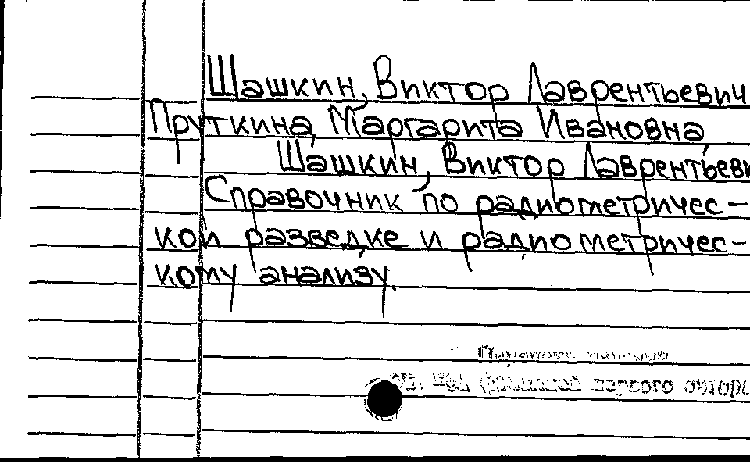 Шашкин, Виктор Лаврентьевич
Пруткина, Маргарита Ивановна
Шашкин, Виктор Лаврентьеви
Справочник по радиометричес-
кой разведке и радиометричес-
кому анализу.
первого автора